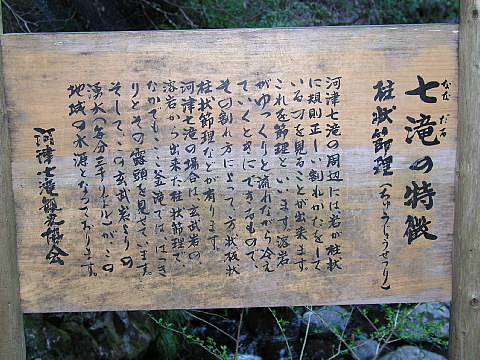 七滝の特徴
なな だる
柱状節理(ちゅうじょうせつり)
河津七滝の周辺には岩が柱状
に規則正しい割れかたをして
いるつを見ることが出来ます
これを節理といいます。溶岩
がゆっくりと流れながら冷え
ていくときにできるもので、
その割れ方によって、方状板状
柱状節理などが有ります。
河津七滝の場合は、玄武岩の
溶岩から出来た柱状節理で、
なかでもここ釜滝では、はっき
りとその露頭を見せています。
そして、この玄武岩よりの
湧水(毎分三千リットル)がこの
地域の水源となっております。
河津七滝観光協会